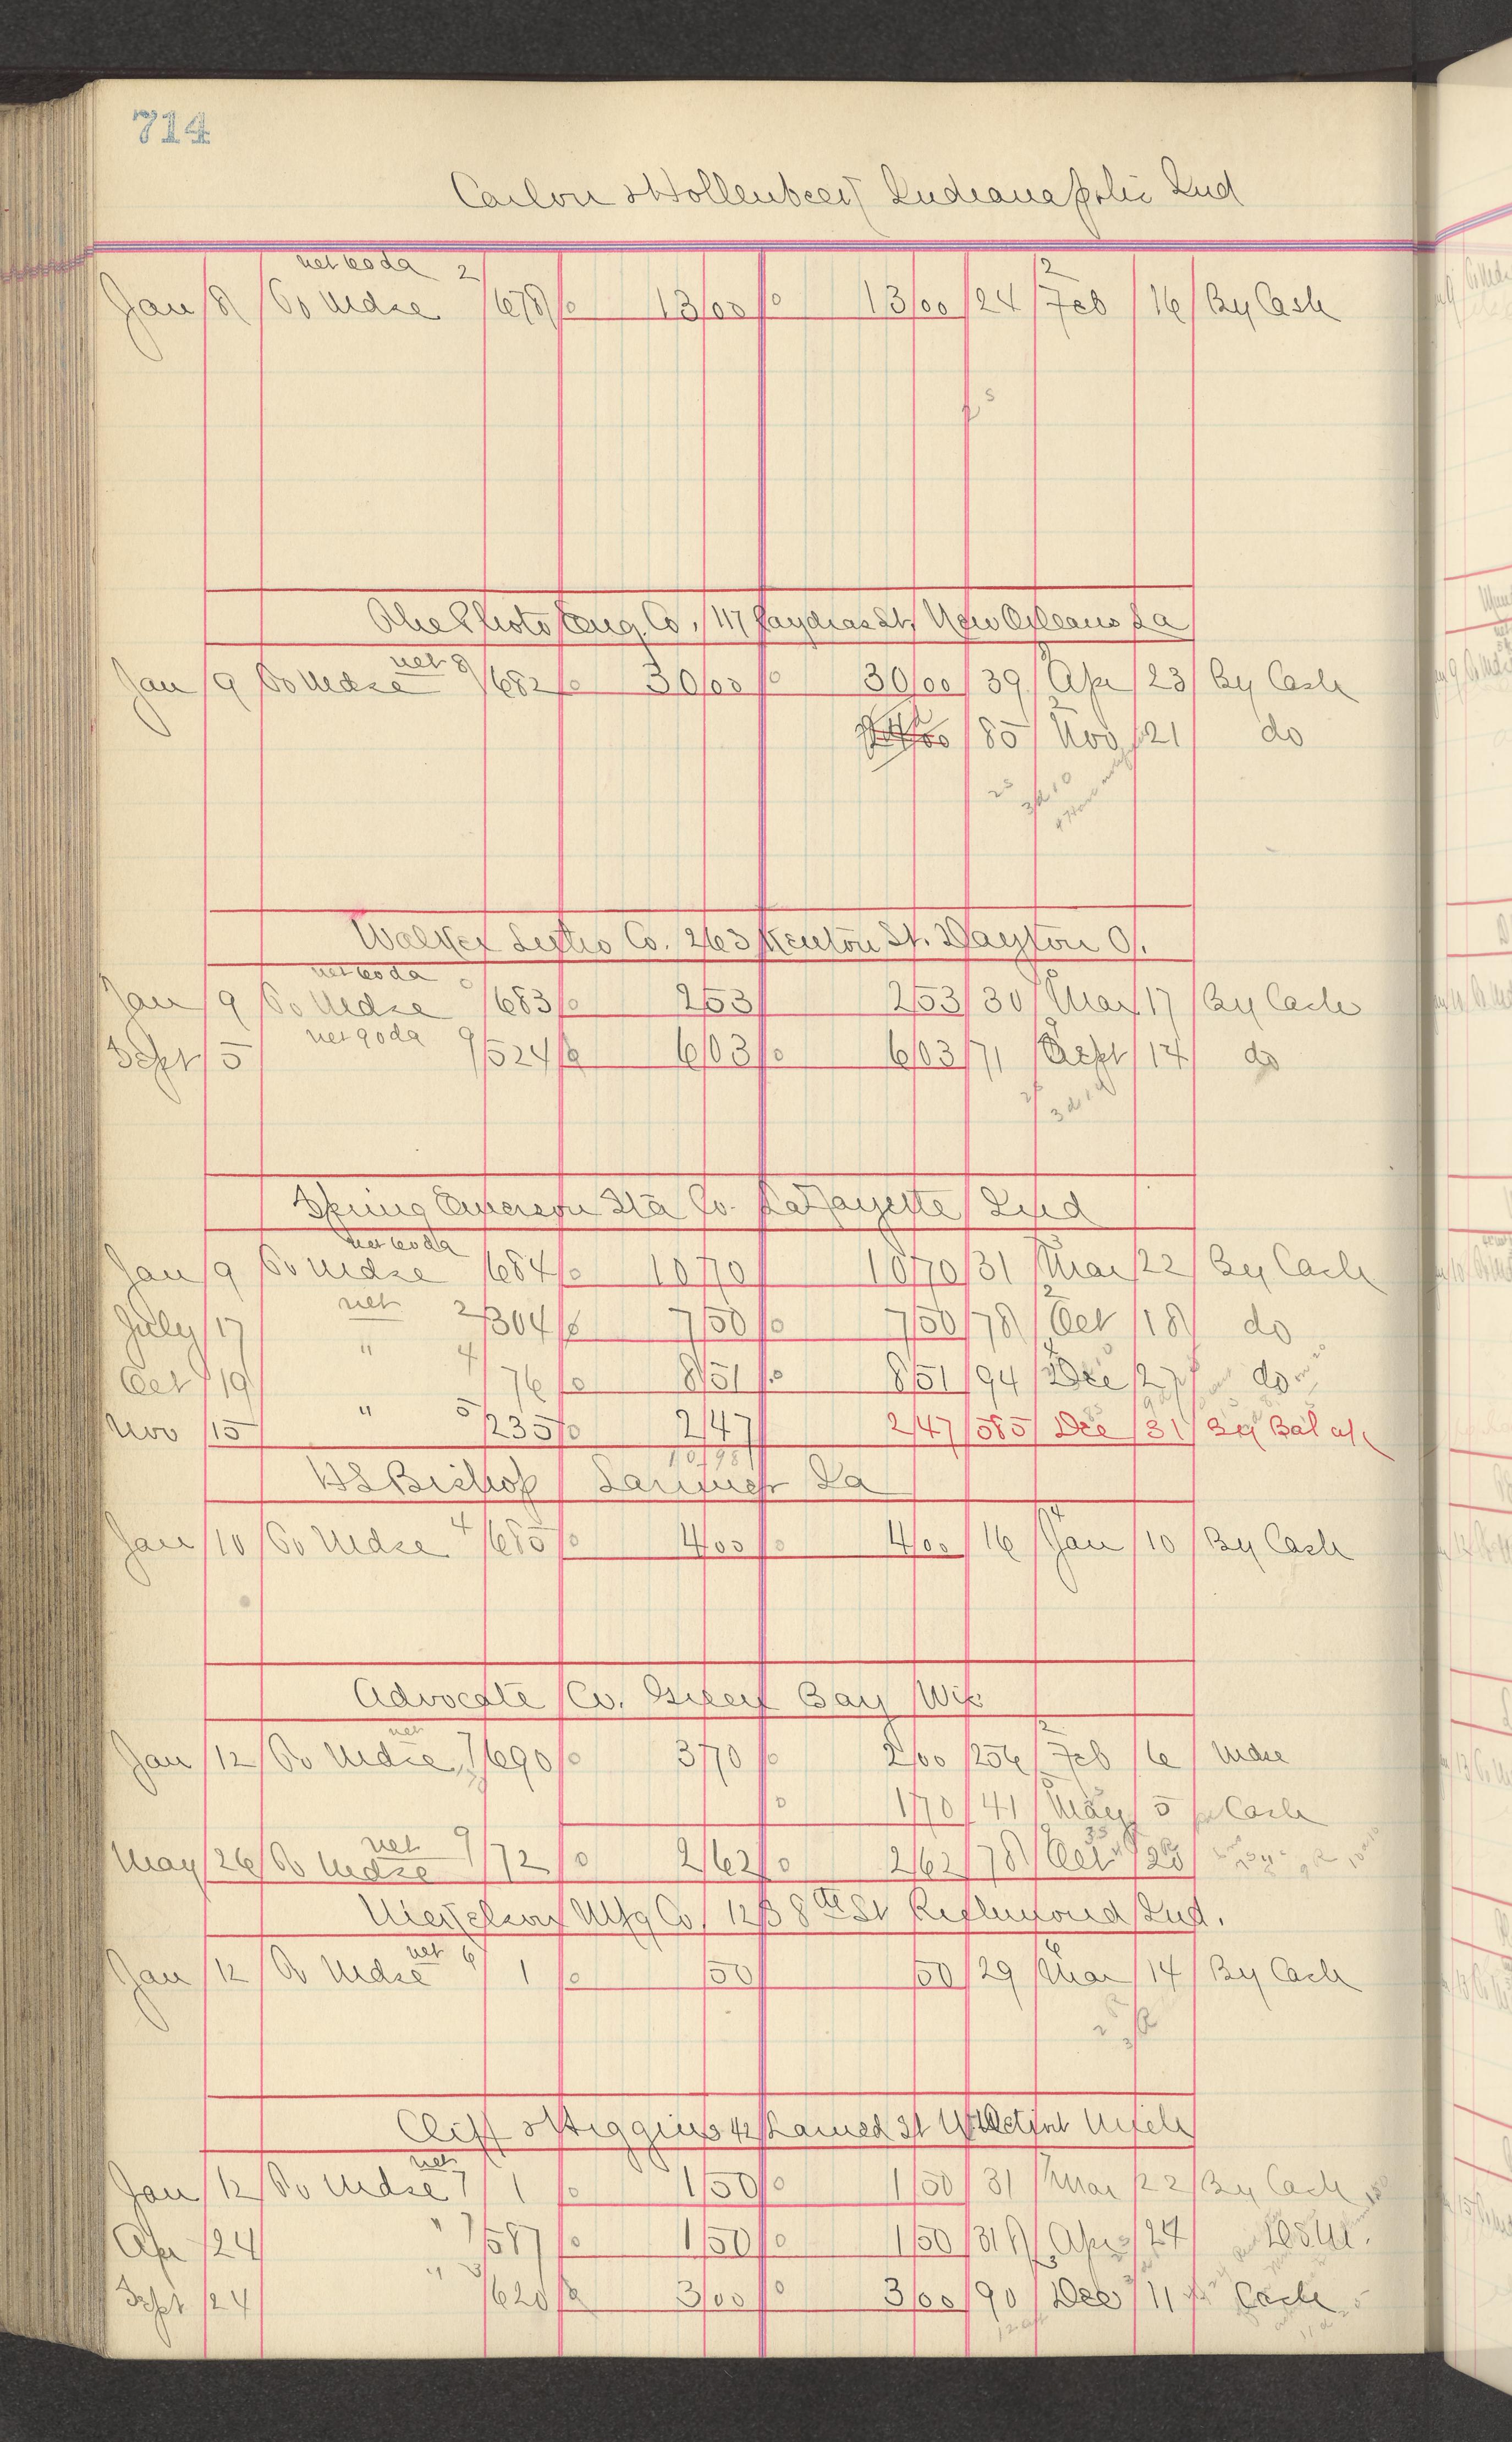 714
Carlon & Hollenbeck Indianapolis Ind
net 60 da 2 2
Jan 8 To Mdse 678 13 00 13 00 24 Feb 16 By Cash
The Photo Eng. Co. 117 Poydras St. New Orleans La
net 8
Jan 9 To Mdse 682 30 00 30 00 39 Apr 23 By Cash
85 Nov 21 do
Walker Litho Co. 263 Kenton St. Dayton O.
net 60 da
Jan 9 To Mdse 683 2 53 2 53 30 Mar 17 By Cash
net 90 da 9
Sept 5 524 6 03 6 03 71 Sept 14 do
Spring Emerson Sta Co. LaFayette Ind
net 60 da
Jan 9 To Mdse 684 10 70 10 70 31 Mar 22 By Cash
July 17 net 2 304 7 50 7 50 78 Oct 18 do
Oct 19 " 4 76 8 51 8 51 94 Dec 27 do
Nov 15 " 5 235 2 47 2 47 585 Dec 31 By Bal a/c
10 98
HL Bishop Larimer Pa
Jan 10 To Mdse 4 685 4 00 4 00 16 Jan 10 By Cash
Advocate Co. Green Bay Wis
net 2
Jan 12 To Mdse 7 690 3 70 2 00 256 Feb 6 Mdse
1 70 41 May 5 Cash
May 26 To Mdse net 9 72 2 62 2 62 78 Oct 20
Mfg Co. 8th St Richmond Ind.
Jan 12 To Mdse net 6 1 50 50 29 Mar 14 By Cash
Cliff & Higgins 42 Larned St W Detroit Mich
net
Jan 12 To Mdse 7 1 1 50 1 50 31 Mar 22 By Cash
Apr 24 " 7 587 1 50 1 50 31 Apr 24
Sept 24 " 3 620 3 00 3 00 90 Dec 11 Cash